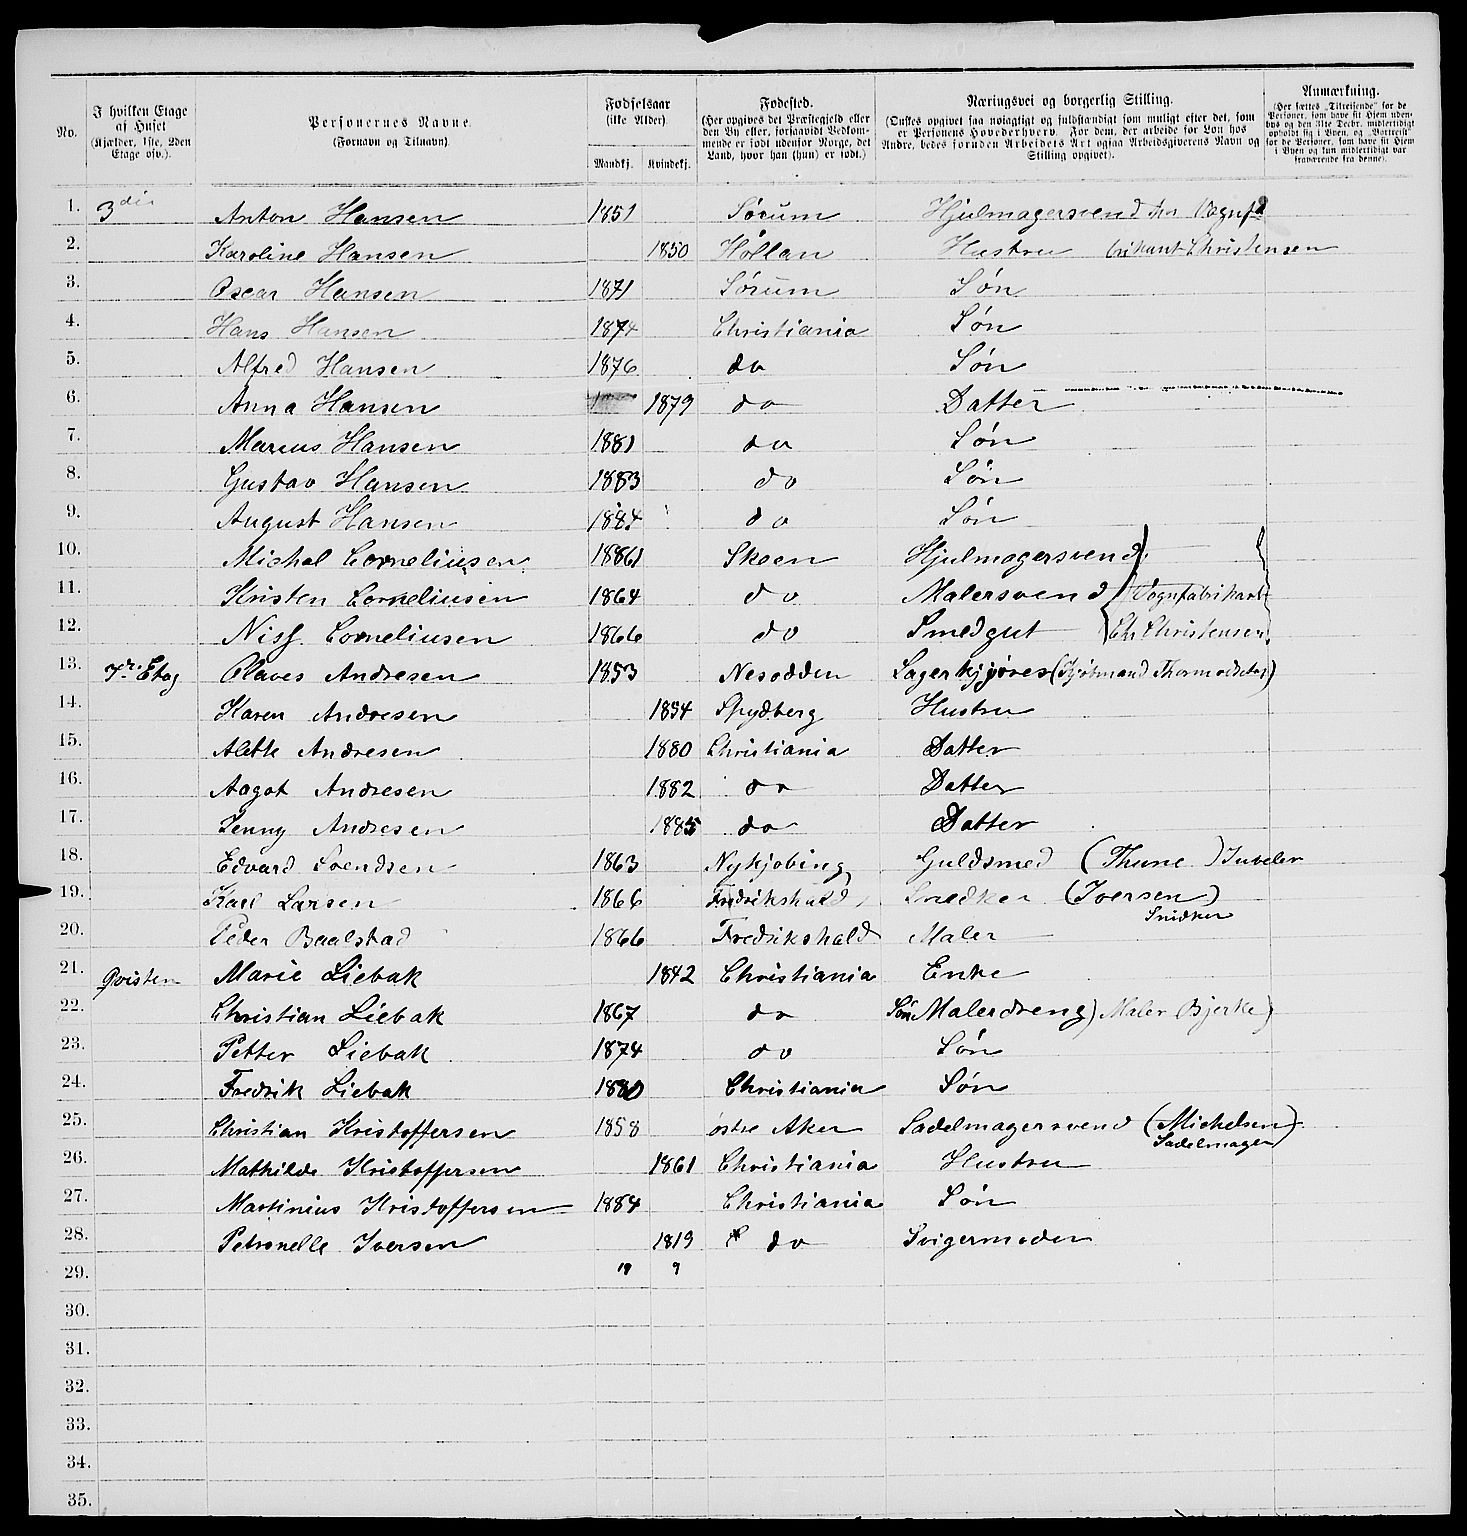 No. | I hvilken Etage af Huset (Kjælder, 1ste, 2den Etage osv.). | Personernes Navne. (Fornavn og Tilnavn). | Fødselsaar (ikke Alder). Mandkj. | Kvindekj. | Fødested. (Her opgives det Præstegjeld eller den By eller, forsaavidt Vedkommende er født udenfor Norge, det Land, hvor han (hun) er født.) | Næringsvei og borgerlig Stilling. (Ønskes opgivet saa nøiagtigt og fuldstændigt som muligt efter det, som er Personens Hovederhverv. For dem, der arbeide for Løn hos Andre, bedes foruden Arbeidets Art ogsaa Arbeidsgiverens Navn og Stilling opgivet). | Anmærkning. (Her sættes „Tilreisende“ for de Personer, som have sit Hjem udenbys og den 31te Decbr. midlertidigt opholdt sig i Byen, og „Bortreist“ for de Personer, som have sit Hjem i Byen og kun midlertidigt var fraværende fra denne).
1. 3die Anton Hansen 1851 Sørum Hjulmagersvend
2. Karoline Hansen 1850 Høllan Hustru Christensen
3. Oscar Hansen 1871 Sørum Søn
4. Hans Hansen 1874 Christiania Søn
5. Alfred Hansen 1876 do Søn
6. Anna Hansen 1879 do Datter
7. Marius Hansen 1881 do Søn
8. Gustav Hansen 1883 do Søn
9. August Hansen 1884 do Søn
10. Michal Corneliusen 1861 Skeen Hjulmagersvend
11. Kristen Corneliusen 1864 do Malersvend } Vognfabrikant
12. Niss Corneliusen 1866 do Smedgut } Ch Christensen
13. Etag Olaves Andresen 1853 Nesodden
14. Karen Andresen 1854 Spydberg Hustru
15. Alette Andresen 1880 Christiania Datter
16. Aagot Andresen 1882 do Datter
17. Jenny Andresen 1885 do Datter
18. Edvard Svendsen 1863 Nykjøbing Guldsmed (Thune) Juveler
19. Karl Larsen 1866 Fredrikshald Snedker (Iversen)
Snidker
20. Peder Baalstad 1866 Fredrikshald Maler
21. Qvisten Marie Liebak 1842 Christiania Enke
22. Christian Liebak 1867 do Søn Malerdreng) Maler Bjerke)
23. Petter Liebak 1874 do Søn
24. Fredrik Liebak 1880 Christiania Søn
25. Christian Kristoffersen 1858 østre Aker Sadelmagersvend (Michelsen)
Sadelmager
26. Mathilde Kristoffersen 1861 Christiania Hustru
27. Martinius Kristoffersen 1884 Christiania Søn
28. Petronelle Iversen 1819 do Svigermoder
29. 19 9
30.
31.
32.
33.
34.
35.